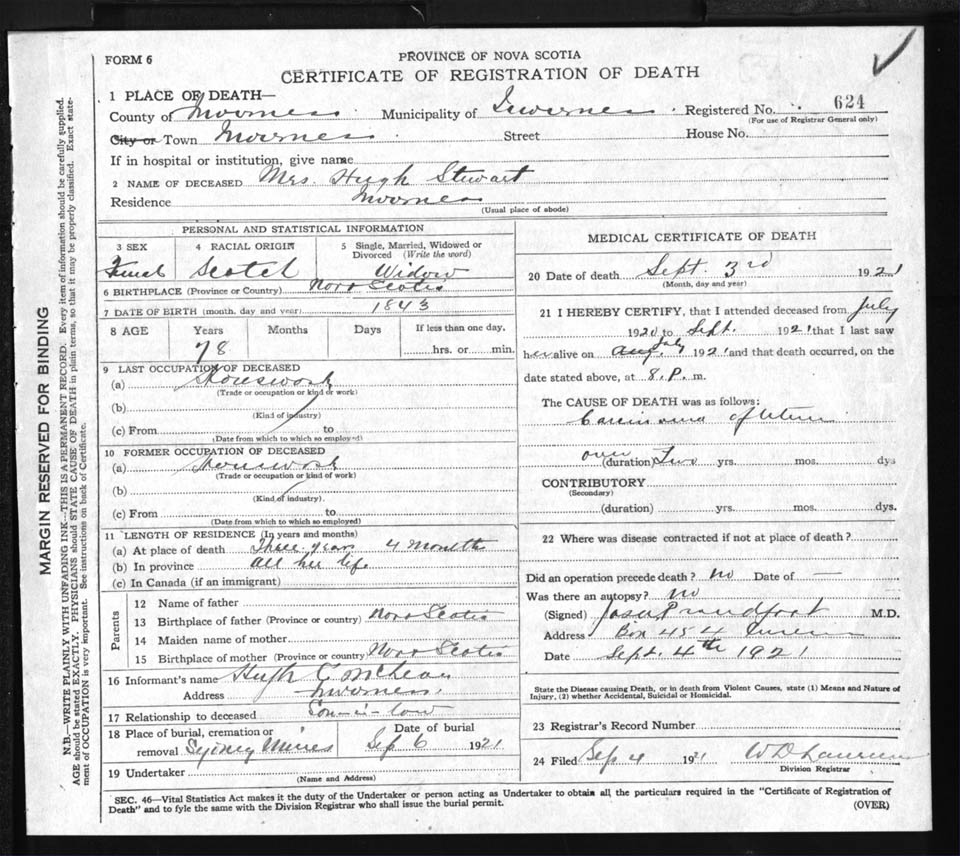 FORM 6
PROVINCE OF NOVA SCOTIA
CERTIFICATE OF REGISTRATION OF DEATH
1 PLACE OF DEATH—
County of Inverness Municipality of Inverness Registered No. 624
(For use of Registrar General only)
City or Town Inverness Street House No.
If in hospital or institution, give name
2 NAME OF DECEASED Mrs. Hugh Stewart
Residence Inverness
(Usual place of abode)
PERSONAL AND STATISTICAL INFORMATION
3 SEX 4 RACIAL ORIGIN 5 Single, Married, Widowed or Divorced (Write the word)
Female Scotch Widow
6 BIRTHPLACE (Province or Country) Nova Scotia
7 DATE OF BIRTH (month, day and year) 1843
8 AGE Years Months Days If less than one day,
78 hrs. or min.
9 LAST OCCUPATION OF DECEASED
(a) Housework
(Trade or occupation or kind of work)
(b)
(Kind of industry)
(c) From to
(Date from which to which so employed)
10 FORMER OCCUPATION OF DECEASED
(a) Housework
(Trade or occupation or kind of work)
(b)
(Kind of industry).
(c) From to
(Date from which to which so employed)
11 LENGTH OF RESIDENCE (In years and months)
(a) At place of death Three years 4 months
(b) In province all her life
(c) In Canada (if an immigrant)
Parents
12 Name of father
13 Birthplace of father (Province or country) Nova Scotia
14 Maiden name of mother
15 Birthplace of mother (Province or country) Nova Scotia
16 Informant's name Hugh McLean
Address Inverness
17 Relationship to deceased Son-i-law
18 Place of burial, cremation or removal Sydney Mines Date of burial Sep 6 1921
19 Undertaker
(Name and Address)
MEDICAL CERTIFICATE OF DEATH
20 Date of death Sept. 3rd 1921
(Month, day and year)
21 I HEREBY CERTIFY, that I attended deceased from July
1920 to Sept. 1921 that I last saw
her alive on Aug. July 1921 and that death occurred, on the
date stated above, at 8.P. m.
The CAUSE OF DEATH was as follows:
Carcinoma of Uterus
over
(duration) Two yrs. mos. dys
CONTRIBUTORY
(Secondary)
(duration) yrs. mos. dys.
22 Where was disease contracted if not at place of death?
Did an operation precede death? no Date of —
Was there an autopsy? no
(Signed) Proudfoot M.D.
Address Box 454 Inverness
Date Sept. 4th 1921
State the Disease causing Death, or in death from Violent Causes, state (1) Means and Nature of Injury, (2) whether Accidental, Suicidal or Homicidal.
23 Registrar's Record Number
24 Filed Sep 4 1921 W D
Division Registrar
SEC. 46—Vital Statistics Act makes it the duty of the Undertaker or person acting as Undertaker to obtain all the particulars required in the "Certificate of Registration of
Death" and to fyle the same with the Division Registrar who shall issue the burial permit. (OVER)
MARGIN RESERVED FOR BINDING
N.B.—WRITE PLAINLY WITH UNFADING INK—THIS IS A PERMANENT RECORD. Every item of information should be carefully supplied.
AGE should be stated EXACTLY. PHYSICIANS should STATE CAUSE OF DEATH in plain terms, so that it may be properly classified. Exact state-
ment of OCCUPATION is very important. See instructions on back of Certificate.